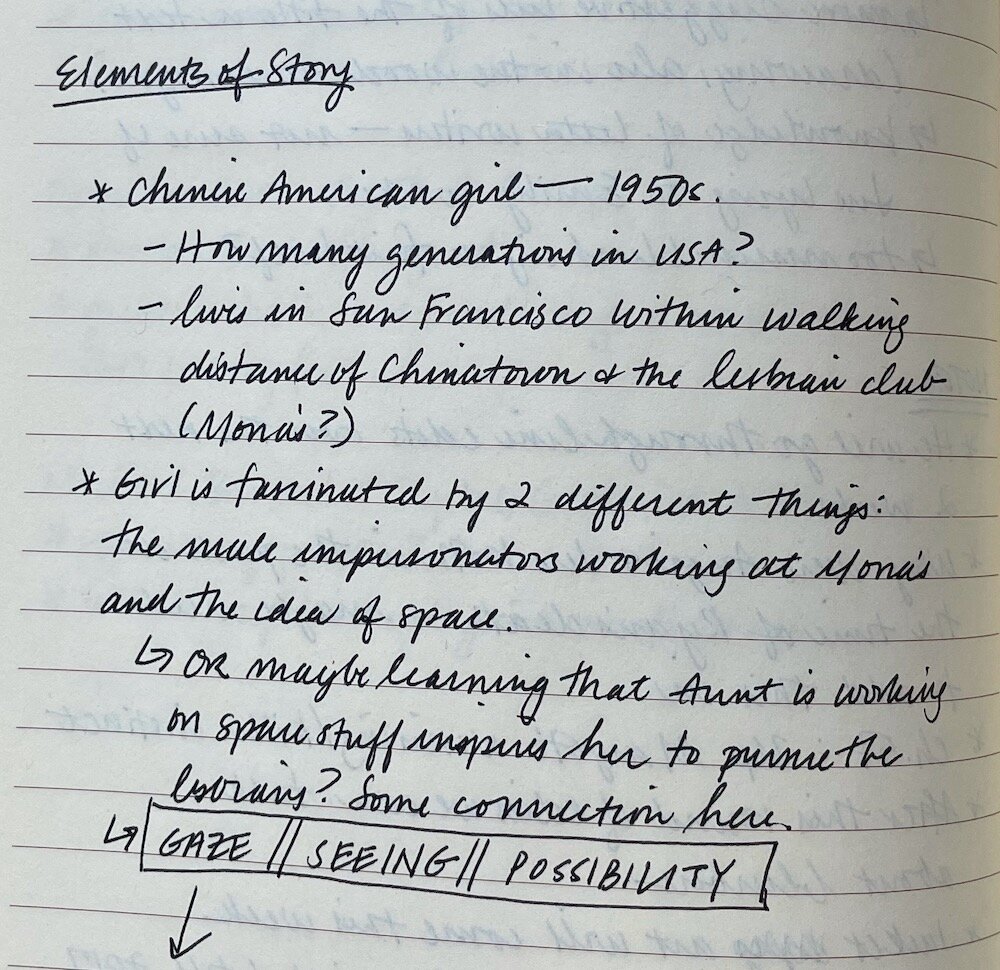 Elements of Story
* Chinese American girl — 1950s.
- How many generations in USA?
- lives in San Francisco within walking
distance of Chinatown & the lesbian club
(Mona's?)
* Girl is fascinated by 2 different things:
the male impersonators working at Mona's
and the idea of space.
↳ OR maybe learning that Aunt is working
on space stuff inspires her to pursue the
lesbians? Some connection here.
↳ GAZE || SEEING || POSSIBILITY
↓